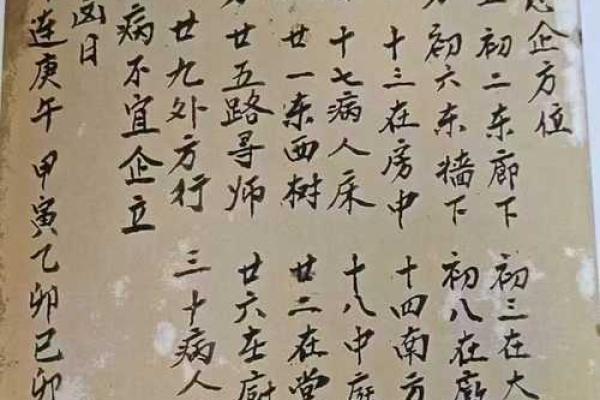 企方位
初二东廊下 初三在大
初六东墙下 初八在
十三在房中 十四南方
十七病人床 十八中庭
廿一东西树 廿二在堂
廿五路寻师 廿六在厨
廿九外方行 三十病人
病不宜企立
凶日
连庚午 甲寅乙卯已卯